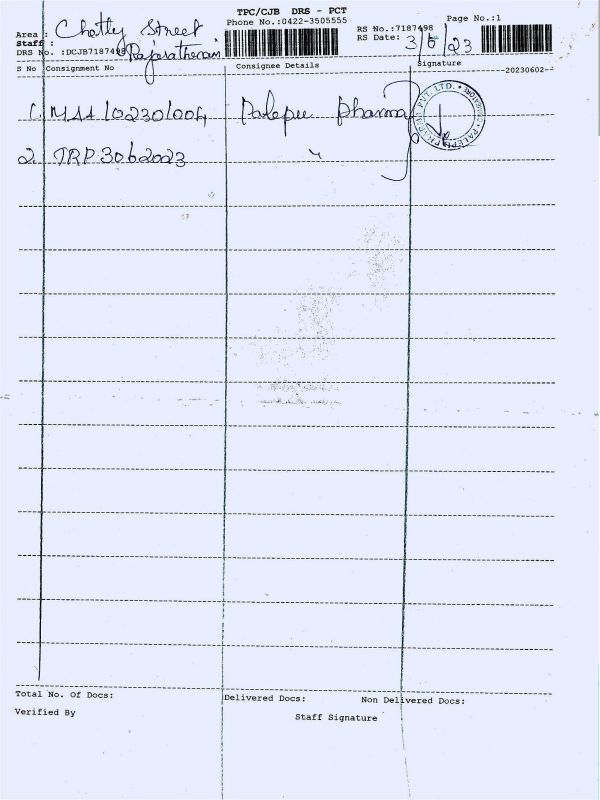 TPC/CJB DRS - PCT
Phone No.:0422-3505555
Page No.:1
Area : Chetty Street
RS No.:7187498
Staff :
RS Date: 3/6/23
DRS No. :DCJB7187498
S No Consignment No Consignee Details Signature
--20230602--
1. 102301004 Palepu Pharma
PALEPU PVT. LTD.
2. TRP3062023 "
Total No. Of Docs: Delivered Docs: Non Delivered Docs:
Verified By Staff Signature